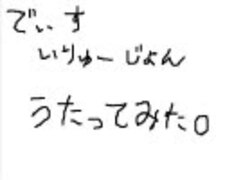 でぃす
いりゅーじょん
うたってみた。